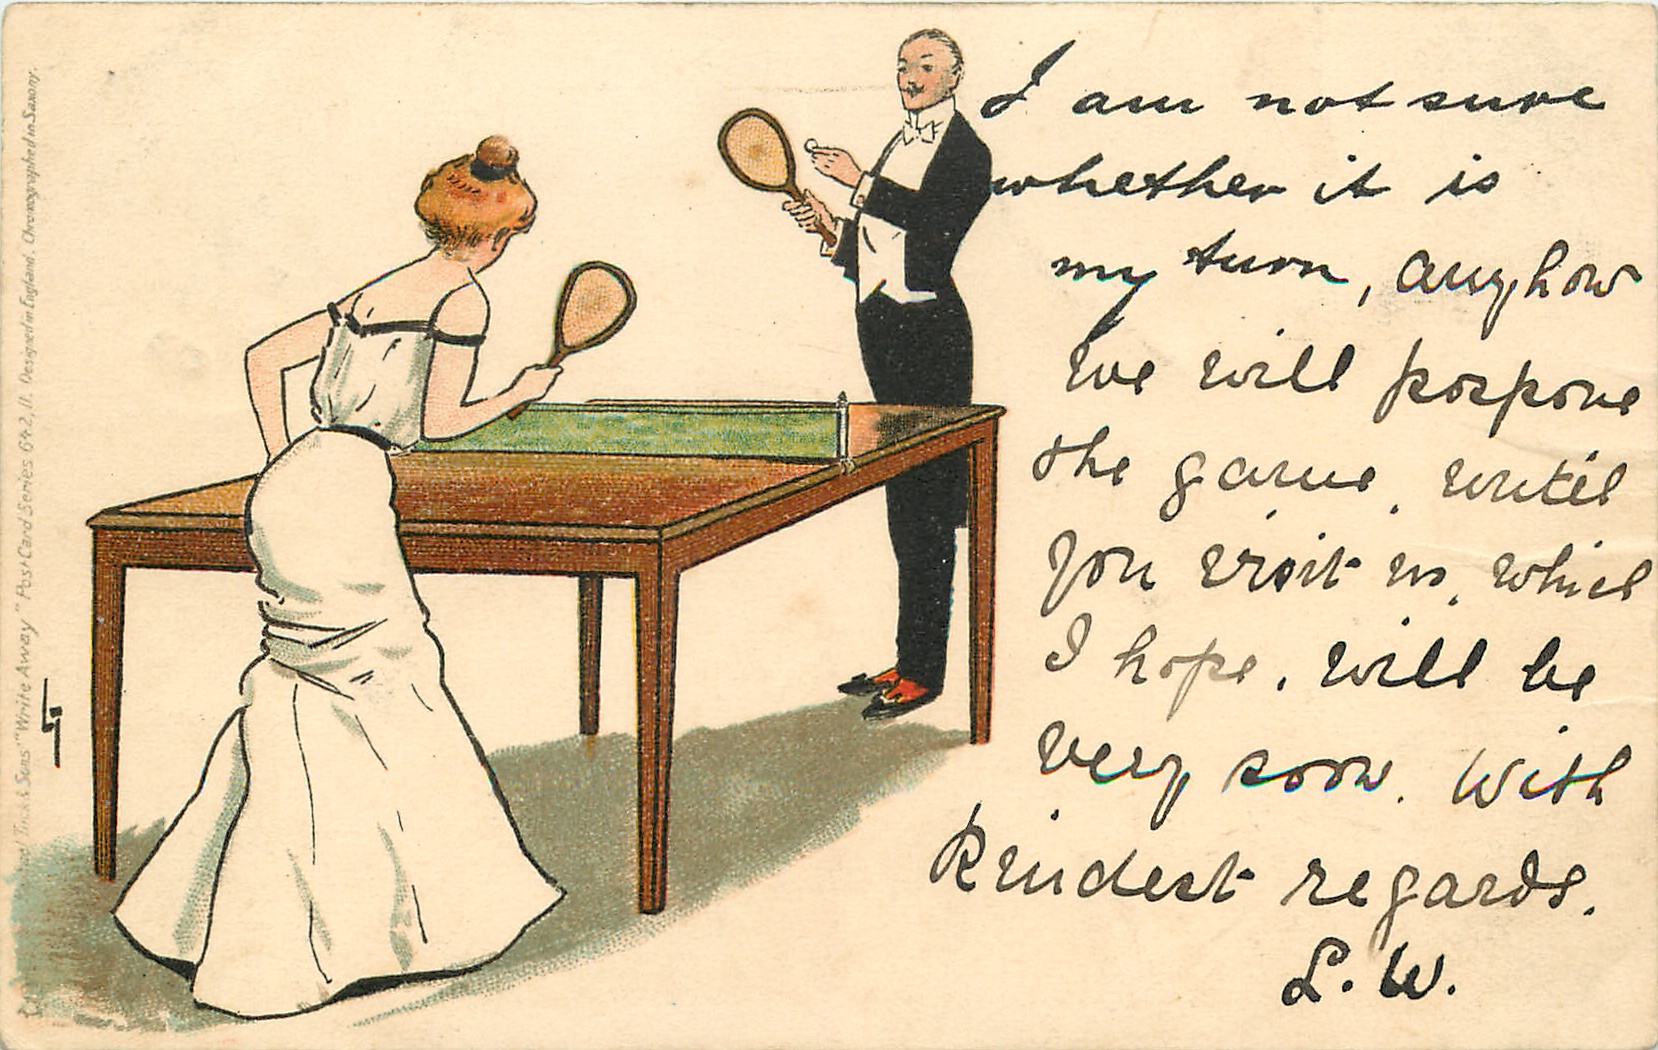 I am not sure
whether it is
my turn, anyhow
we will pospone
the game, until
you visit us, which
I hope, will be
very soon. With
Kindest regards.
L. W.
Tuck & Sons' "Write Away" Post Card Series 642, II. Designed in England. Chromographed in Saxony.